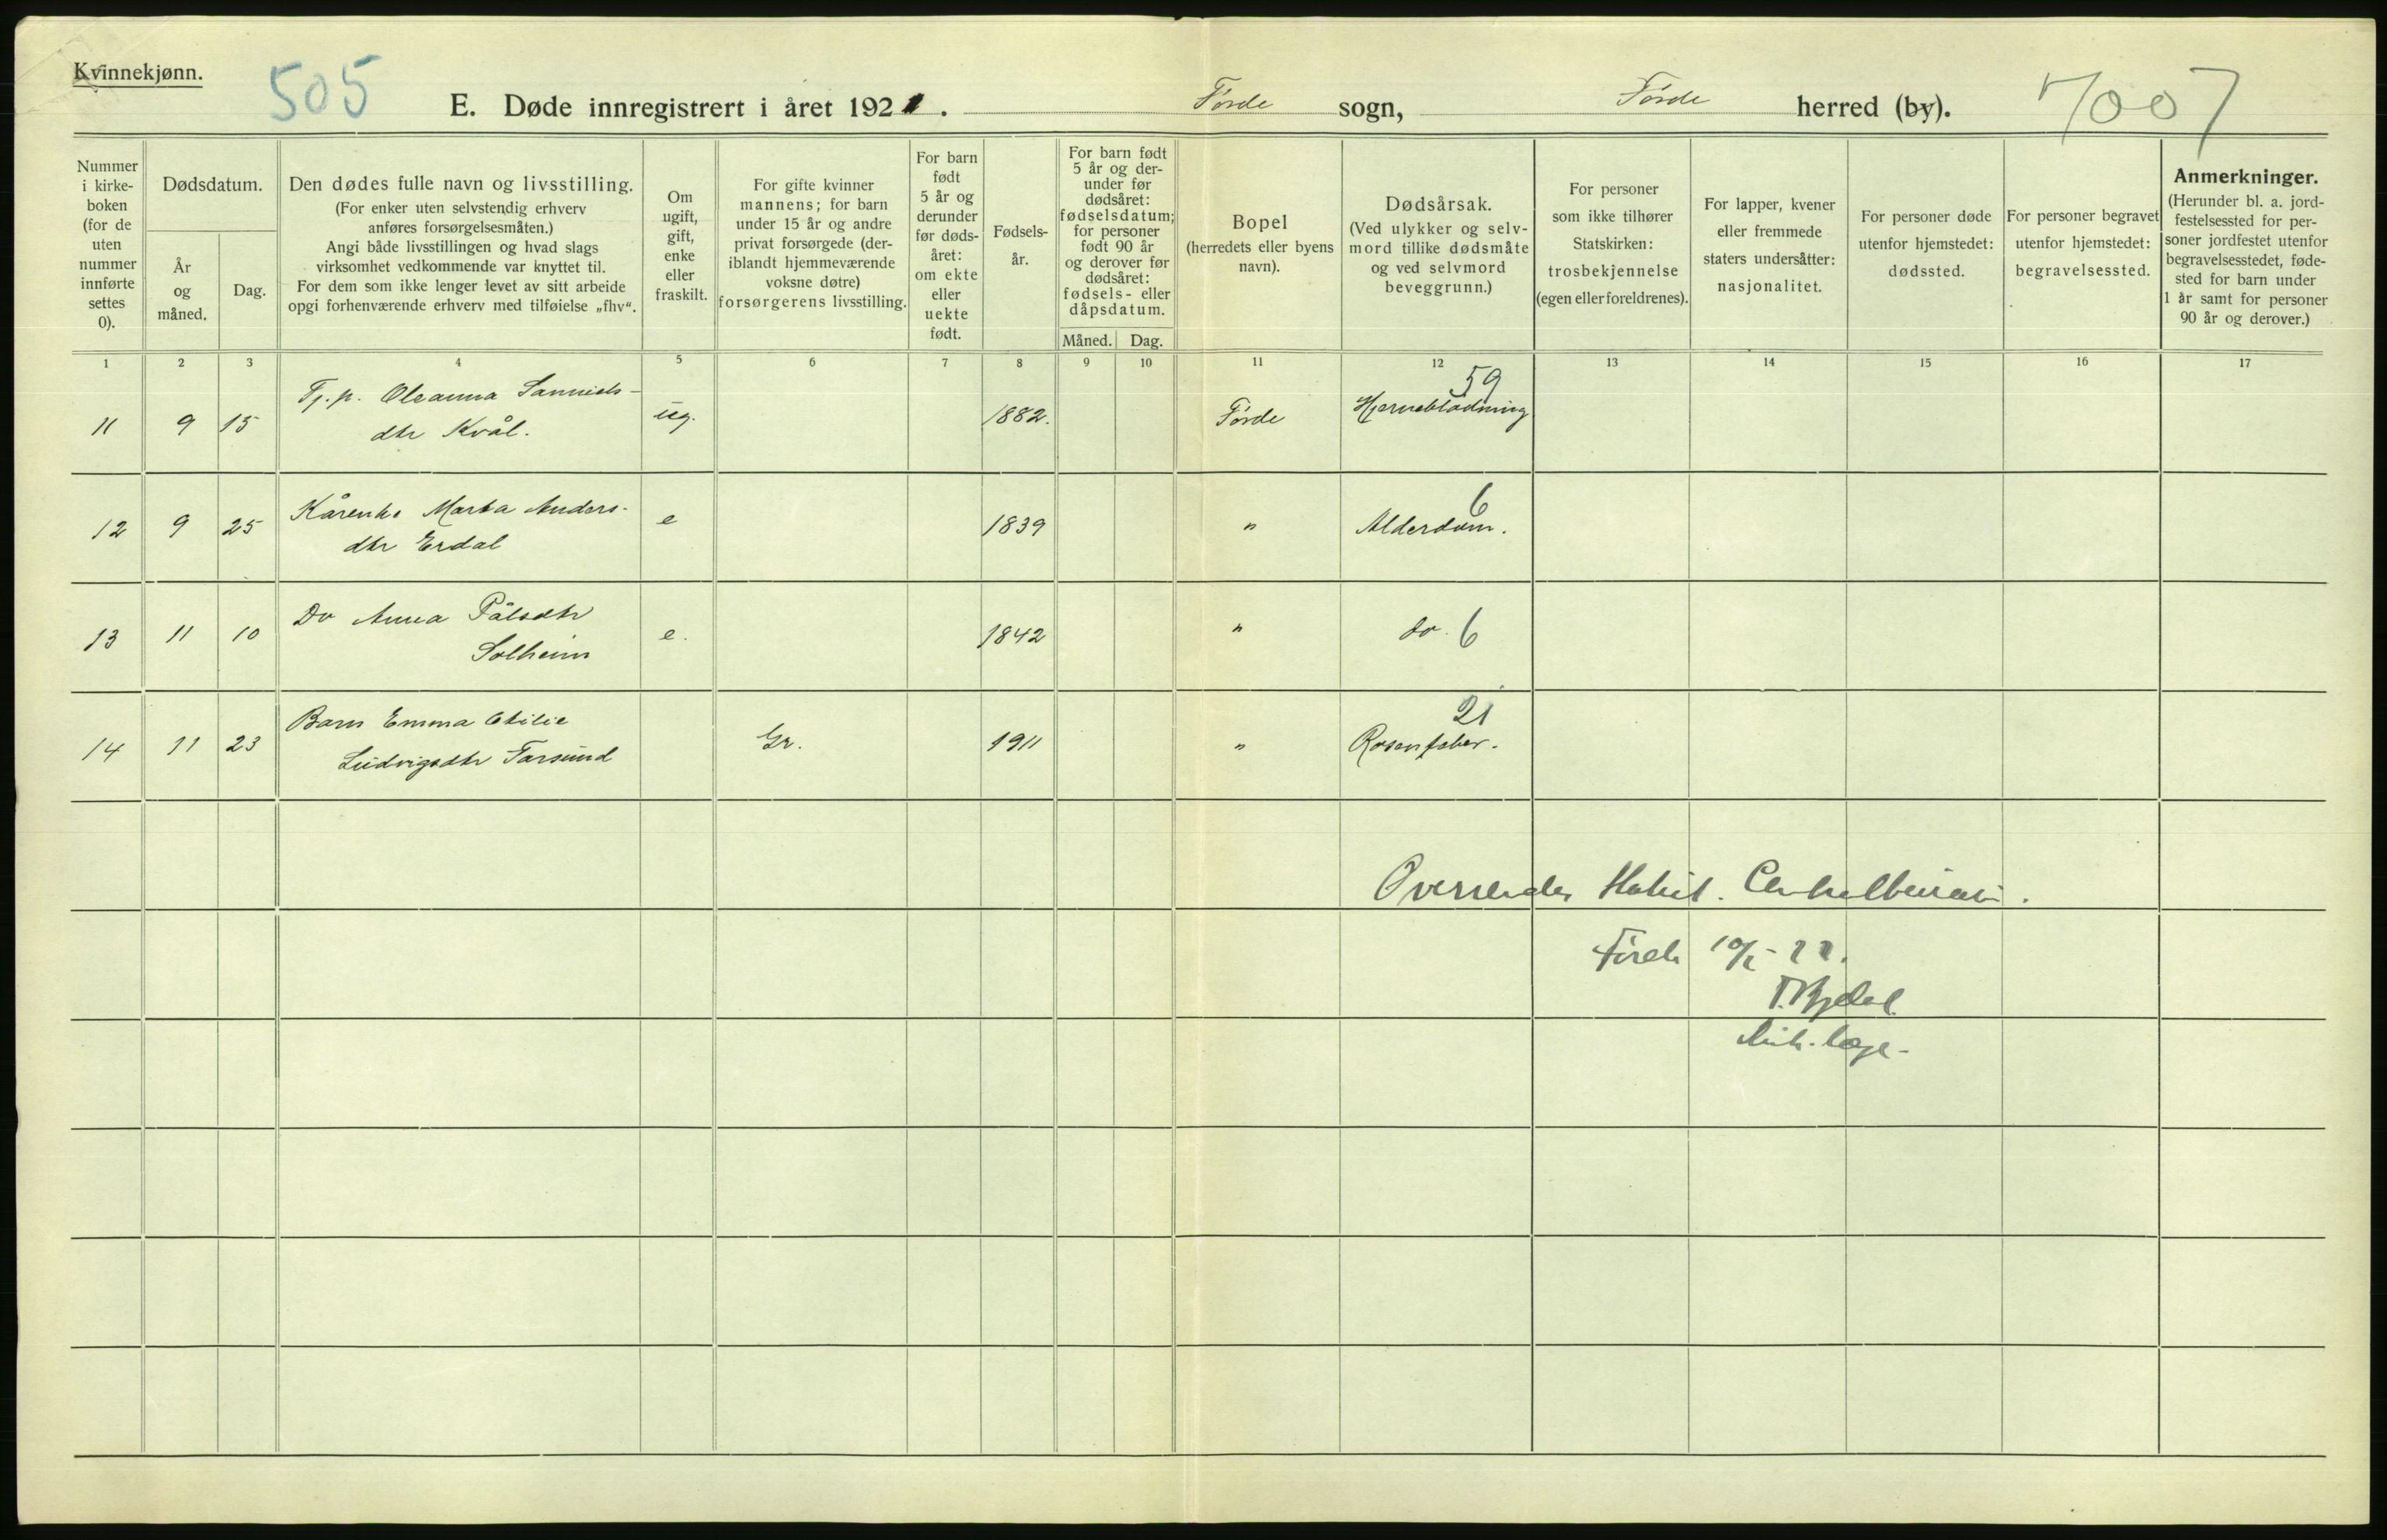 Kvinnekjønn.
505
E. Døde innregistrert i året 1921. Førde sogn, Førde herred (by). 7007
Nummer
i kirke-
boken
(for de
uten
nummer
innførte
settes
0).
Dødsdatum.
År
og
måned.
Dag.
Den dødes fulle navn og livsstilling.
(For enker uten selvstendig erhverv
anføres forsørgelsesmåten.)
Angi både livsstillingen og hvad slags
virksomhet vedkommende var knyttet til.
For dem som ikke lenger levet av sitt arbeide
opgi forhenværende erhverv med tilføielse „fhv“.
Om
ugift,
gift,
enke
eller
fraskilt.
For gifte kvinner
mannens; for barn
under 15 år og andre
privat forsørgede (der-
iblandt hjemmeværende
voksne døtre)
forsørgerens livsstilling.
For barn
født
5 år og
derunder
før døds-
året:
om ekte
eller
uekte
født.
Fødsels-
år.
For barn født
5 år og der-
under før
dødsåret:
fødselsdatum;
for personer
født 90 år
og derover før
dødsåret:
fødsels- eller
dåpsdatum.
Måned. Dag.
Bopel
(herredets eller byens
navn).
Dødsårsak.
(Ved ulykker og selv-
mord tillike dødsmåte
og ved selvmord
beveggrunn.)
For personer
som ikke tilhører
Statskirken:
trosbekjennelse
(egen eller foreldrenes).
For lapper, kvener
eller fremmede
staters undersåtter:
nasjonalitet.
For personer døde
utenfor hjemstedet:
dødssted.
For personer begravet
utenfor hjemstedet:
begravelsessted.
Anmerkninger.
(Herunder bl. a. jord-
festelsessted for per-
soner jordfestet utenfor
begravelsesstedet, føde-
sted for barn under
1 år samt for personer
90 år og derover.)
1 2 3 4 5 6 7 8 9 10 11 12 13 14 15 16 17
59
11 9 15 Tj.p. Oleanna Samuels-
dtr Kvål. ug. 1882. Førde Hjerneblødning
6
12 9 25 Kårenke Marta Anders-
dtr Erdal e 1839 " Alderdom.
13 11 10 Do Anna Pålsdtr
Solheim e. 1842 " do. 6
21
14 11 23 Barn Emma Otilie
Ludvigsdtr Farsund Gr. 1911 " Rosenfeber.
Oversendes Statist. Centralbureau.
Førde